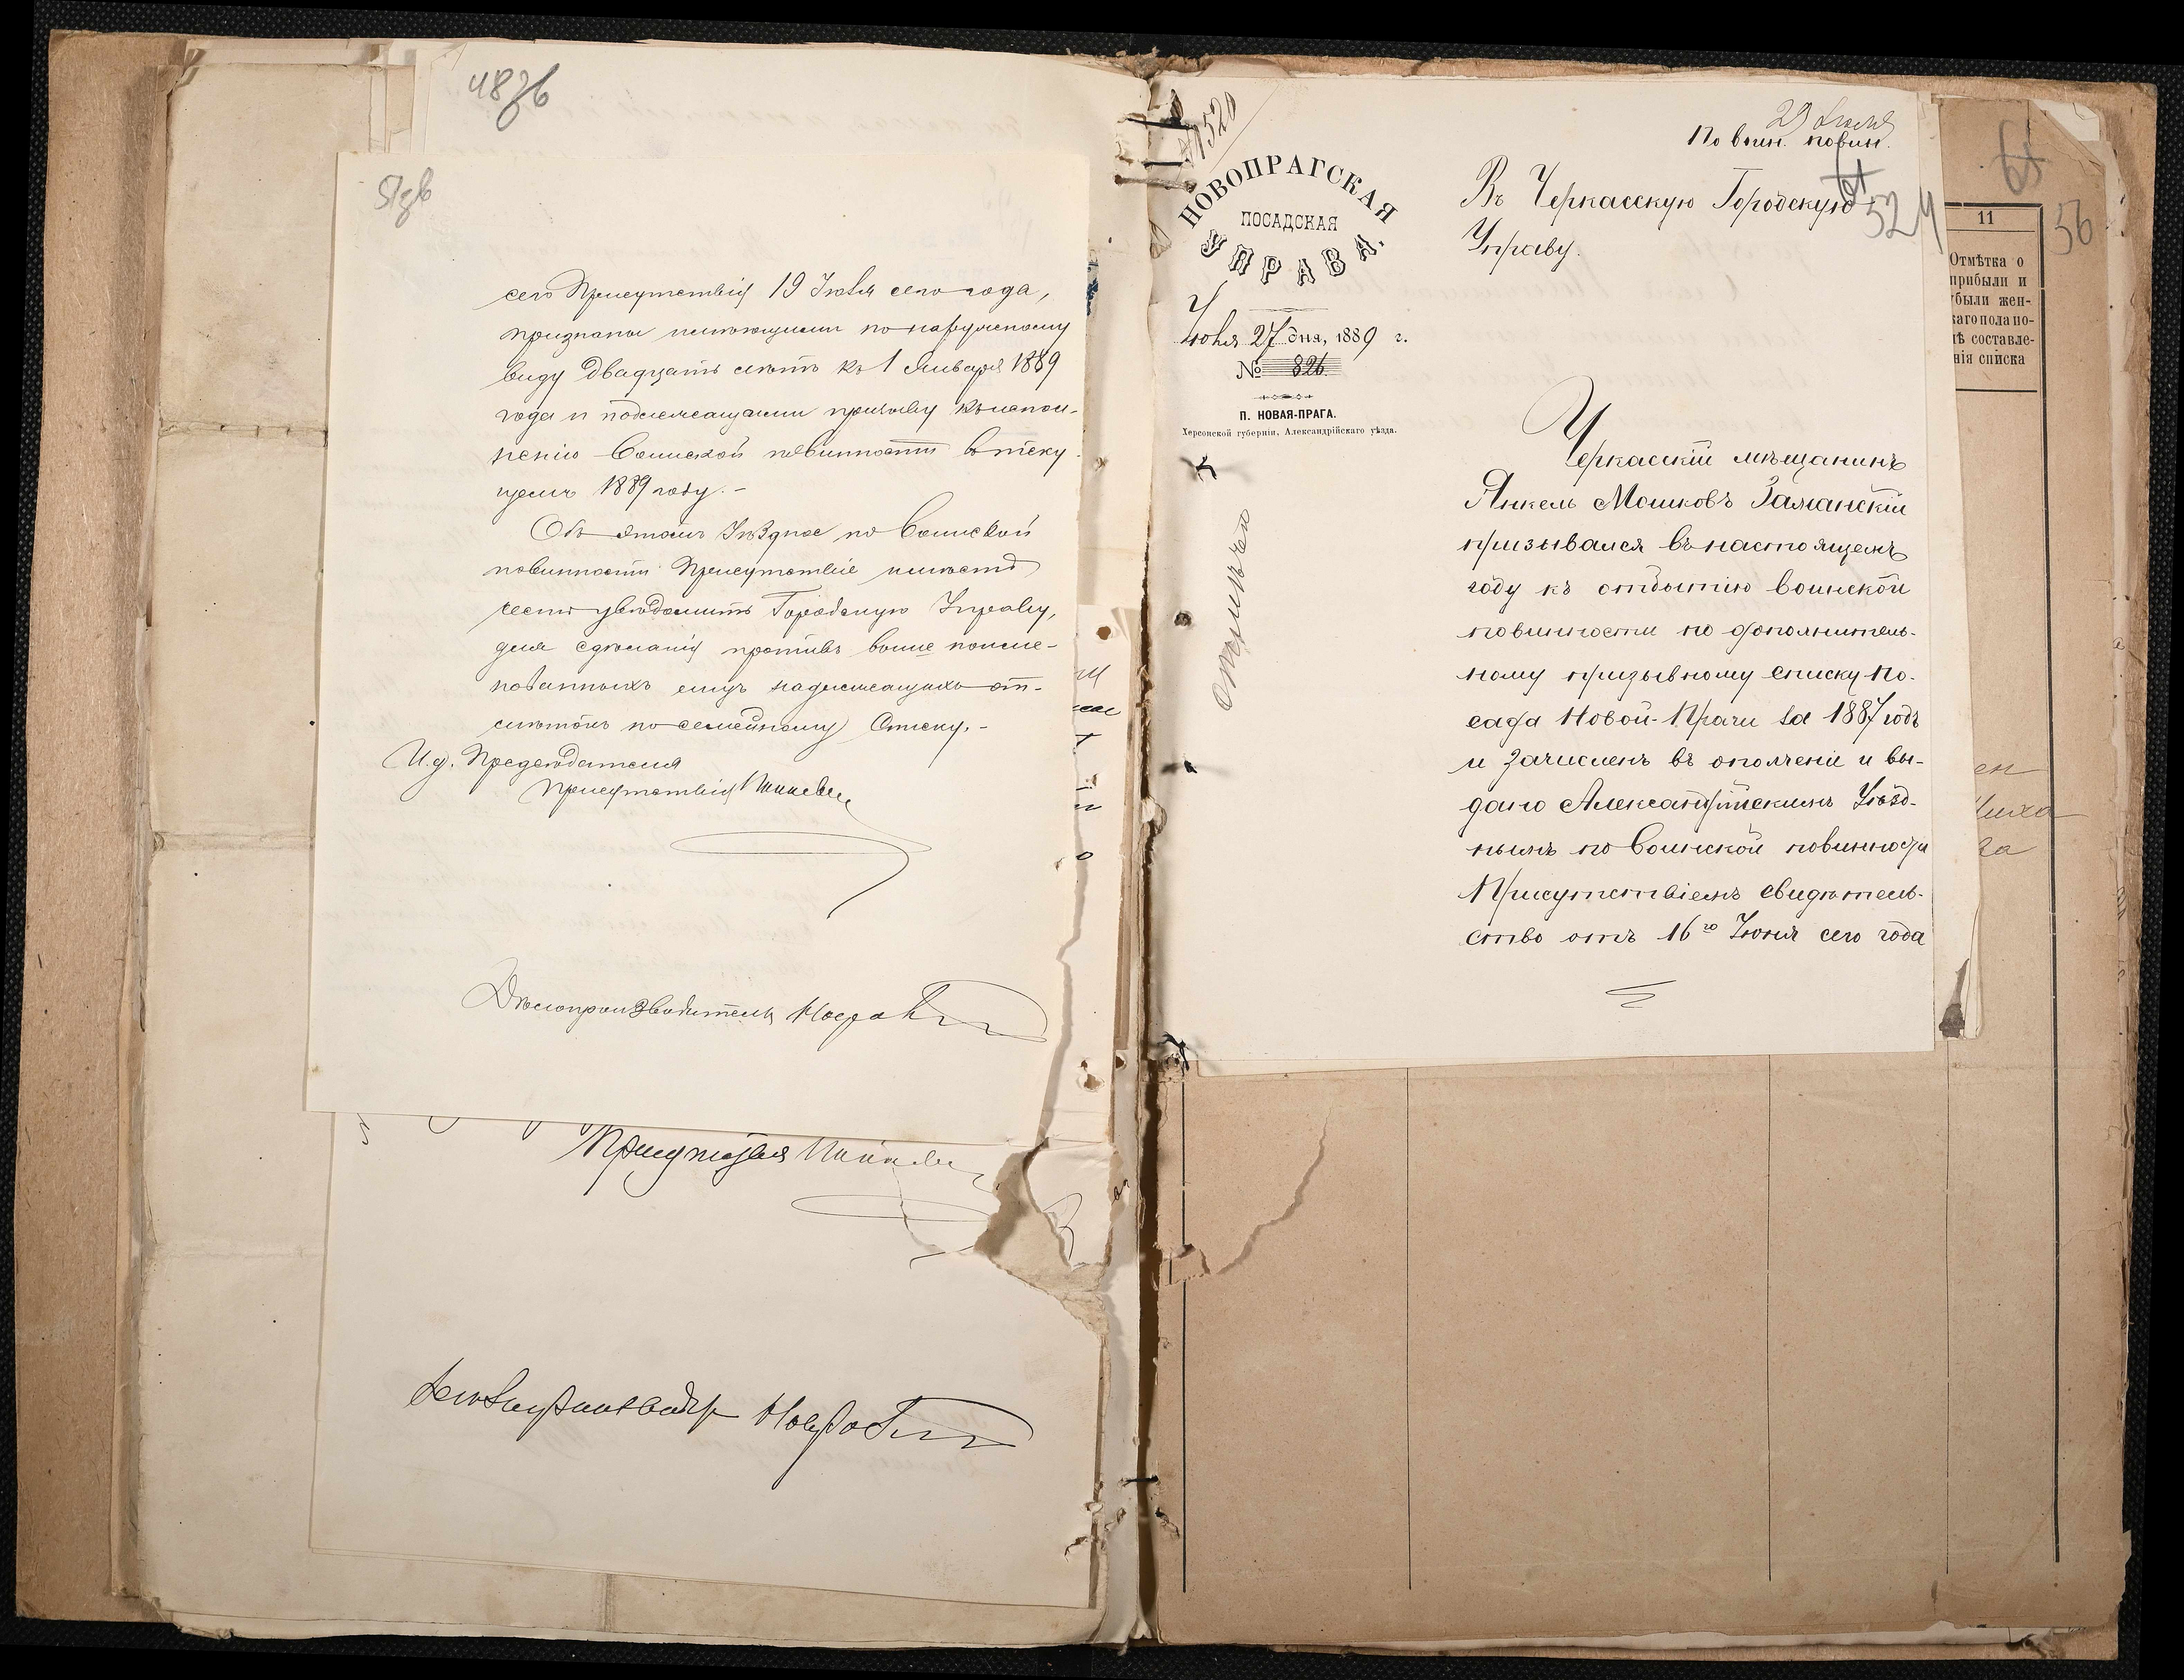 48зв
51зв
сего Присутствія 19 Іюня сего года,
признаны имѣющими по наружному
виду двадцать лѣтъ къ 1 Января 1889
года и подлежащими призыву къ испол-
ненію воинской повинности въ теку-
щемъ 1889 году.-
Объ этомъ Уѣздное по воинской
повинности Присутствіе имѣетъ
честь увѣдомить Городскую Управу,
для сдѣланія противъ выше поиме-
нованныхъ лицъ надлежащихъ от-
мѣтокъ по семейному списку.-
И. д. Предсѣдателя
Присутствія
Дѣлопроизводитель
Присутствія
1520
29 Іюня
По воин. повин.
НОВОПРАГСКАЯ
ПОСАДСКАЯ
УПРАВА.
Въ Черкасскую Городскую
Управу.
52
Іюня 27 дня, 1889 г.
№ 826.
П. НОВАЯ-ПРАГА.
Херсонской губерніи, Александрійскаго уѣзда.
Черкасскій мѣщанинъ
Янкель Мошковъ Заманскій
призывался въ настоящемъ
году къ отбытію воинской
повинности по дополнитель-
ному призывному списку по-
сада Новой-Праги за 1887 годъ
и зачисленъ въ ополченіе и вы-
дано Александрійскимъ Уѣзд-
нымъ по воинской повинности
Присутствіемъ свидѣтель-
ство отъ 16го Іюня сего года
11
56
Отмѣтка о
прибыли и
были жен-
каго пола по-
лѣ составле-
нія списка